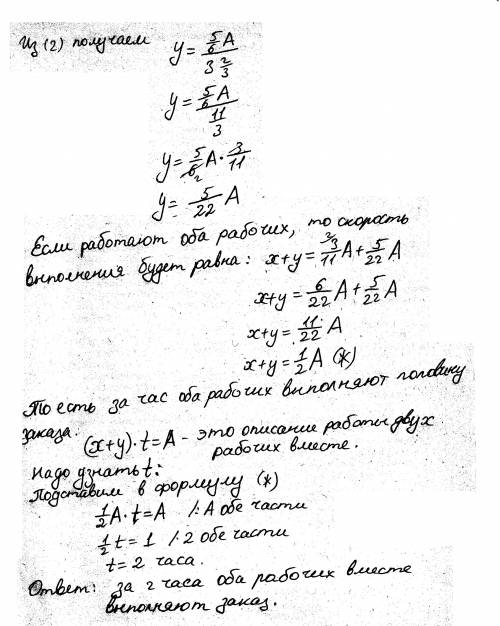 Из (2) получаем y = (5/6 A)/(3 2/3)
y = (5/6 A)/(11/3)
y = 5/6₂ A · 3/11
y = 5/22 A
Если работают оба рабочих, то скорость
выполнения будет равна: x+y = ²⁄3/11 A + 5/22 A
x+y = 6/22 A + 5/22 A
x+y = 11/22 A
x+y = 1/2 A (*)
То есть за час оба рабочих выполняют половину
заказа.
(x+y)·t = A - это описание работы двух
рабочих вместе.
Надо узнать t:
Подставим в формулу (*)
1/2 A·t = A /:A обе части
1/2 t = 1 /·2 обе части
t = 2 часа.
Ответ: за 2 часа оба рабочих вместе
выполняют заказ.